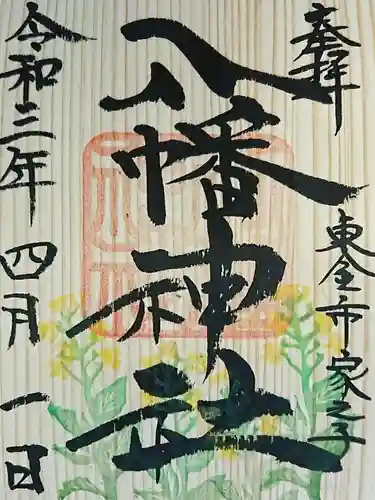 奉拝
東金市家之子
八幡神社
令和三年四月一日